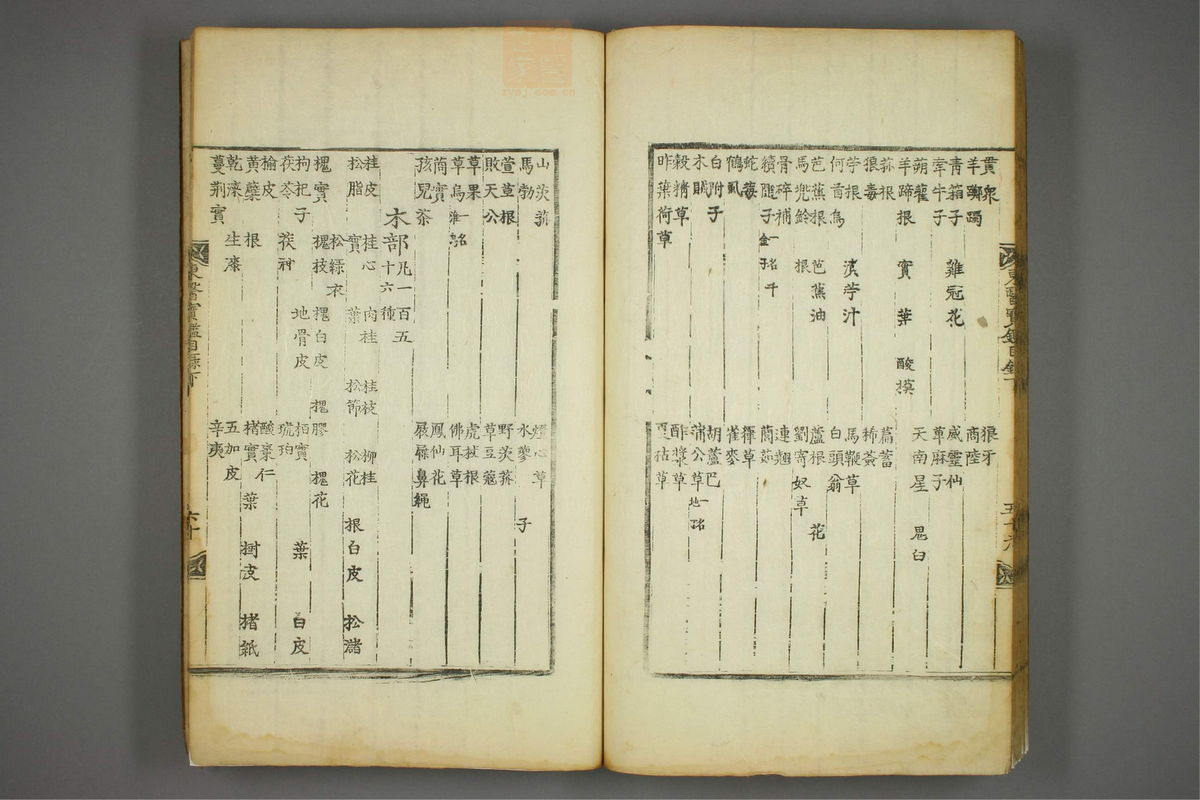 貫衆 狼牙
羊躑躅 商陸
青葙子 雞冠花 威靈仙
牽牛子 萆麻子
蒴藋 天南星 鬼臼
羊蹄根 實 葉 酸模
菰根 萹蓄
狼毒 稀薟
苧根 漬苧汁 馬鞭草
何首烏 白頭翁
芭蕉根 芭蕉油 蘆根 花
馬兜鈴 根 劉寄奴草
骨碎補 連翹
續隨子 一名千金子 䕡茹
蛇莓 葎草
鶴虱 雀麥
白附子 胡蘆巴
木賊 蒲公草 一名地
穀精草 酢漿草
昨葉荷草 夏枯草
東醫寶鑑目錄下
山茨菰 燈心草
馬勃 水蓼 子
萱草根 野茨菰
敗天公 草豆蔻
草果 虎杖根
草烏 佛耳草
茼實 鳳仙花
孩兒茶 屐屧鼻繩
木部 凡一百五十六種
桂皮 桂心 肉桂 桂枝 柳桂
松脂 實 葉 松節 松花 根白皮 松諸
松綠衣
槐實 槐枝 槐白皮 槐膠 槐花
枸杞子 地骨皮 栢實 葉 白皮
茯苓 茯神 琥珀
榆皮 酸棗仁
黃蘗 根 楮實 葉 樹皮 楮紙
乾漆 生漆 五加皮
蔓荊實 辛夷
東醫寶鑑目錄下 六十